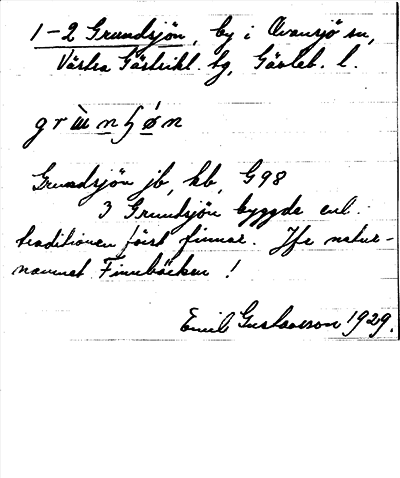 1-2 Grundsjön, by i Ovansjö sn,
Västra Gästrikl. tg, Gävleb. l.
grùnʃøn
Grundsjön jb, kb, G98
3 Grundsjön byggde enl.
traditionen först finnar. Jfr natur-
namnet Finnbäcken !
Emil Gustavson 1929.